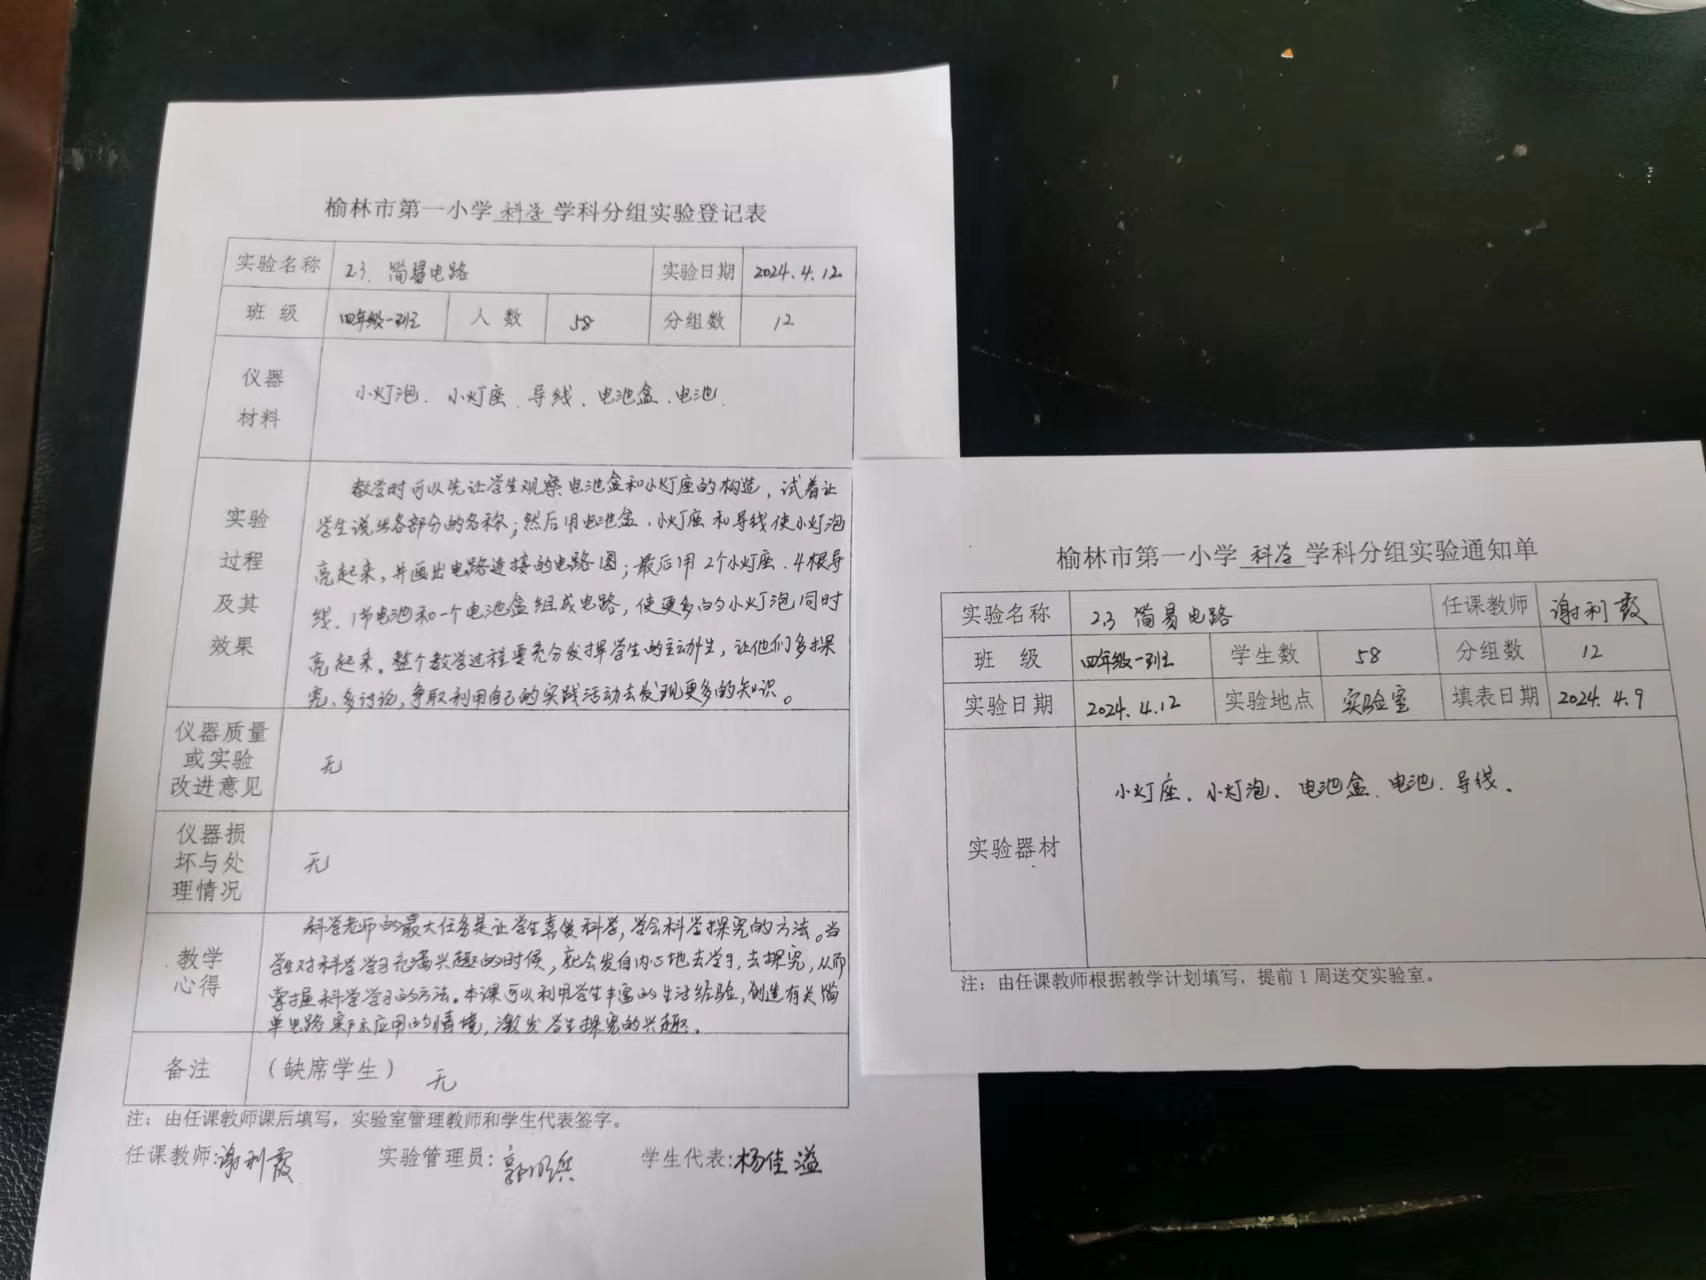 榆林市第一小学 科学 学科分组实验登记表
实验名称 2.3. 简易电路 实验日期 2024.4.12
班 级 四年级一班 人 数 58 分组数 12
仪器
材料
小灯泡、小灯座、导线、电池盒、电池.
实验
过程
及其
效果
教学时可以先让学生观察电池盒和小灯座的构造，试着让
学生说出各部分的名称；然后用电池盒、小灯座和导线使小灯泡
亮起来，并画出电路连接的电路图；最后用2个小灯座、4根导
线、1节电池和一个电池盒组成电路，使更多的小灯泡同时
亮起来。整个教学过程要充分发挥学生的主动性，让他们多探
究、多讨论，争取利用自己的实践活动去发现更多的知识。
仪器质量
或实验
改进意见
无
仪器损
坏与处
理情况
无
教学
心得
科学老师的最大任务是让学生喜爱科学，学会科学探究的方法。当
学生对科学学习充满兴趣的时候，就会发自内心地去学习，去探究，从而
掌握科学学习的方法。本课可以利用学生丰富的生活经验，创造有关简
单电路实际应用的情境，激发学生探究的兴趣。
备注 （缺席学生） 无
注：由任课教师课后填写，实验室管理教师和学生代表签字。
任课教师:谢利霞 实验管理员: 学生代表:杨佳溢
榆林市第一小学 科学 学科分组实验通知单
实验名称 2.3 简易电路 任课教师 谢利霞
班 级 四年级一班 学生数 58 分组数 12
实验日期 2024.4.12 实验地点 实验室 填表日期 2024.4.9
实验器材
小灯座、小灯泡、电池盒、电池、导线.
注：由任课教师根据教学计划填写，提前 1 周送交实验室。